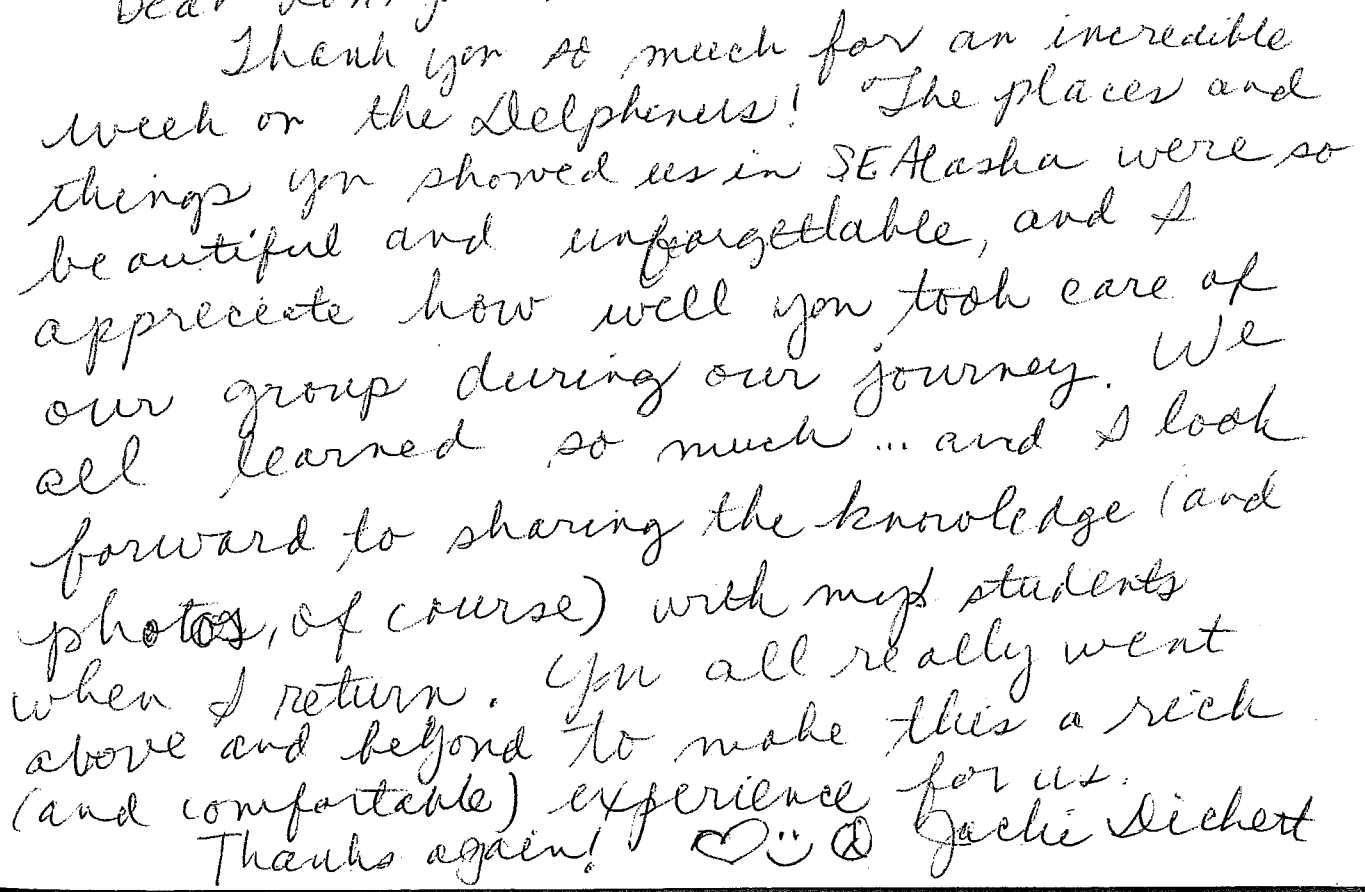 Dear
Thank you so much for an incredible
week on the Delphinus! The places and
things you showed us in SE Alaska were so
beautiful and unforgettable, and I
appreciate how well you took care of
our group during our journey. We
all learned so much... and I look
forward to sharing the knowledge (and
photos, of course) with my students
when I return. You all really went
above and beyond to make this a rich
(and comfortable) experience for us.
Thanks again! Jackie Dichert